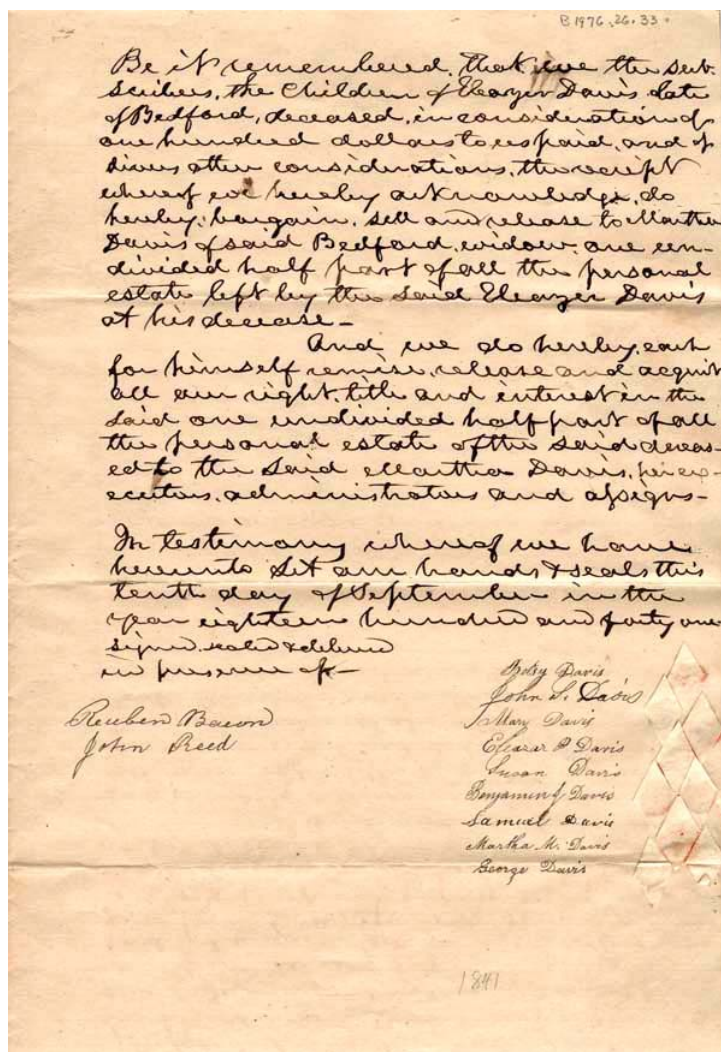 B 1976.26.33
Be it remembered, that we the sub-
scribers, the Children of Eleazer Davis late
of Bedford, deceased, in consideration of
one hundred dollars to us paid, and of
divers other considerations, the receipt
whereof we hereby acknowledge, do
hereby, bargain, sell and release to Martha
Davis of said Bedford, widow, one un-
divided half part of all the personal
estate left by the said Eleazer Davis
at his decease—
And we do hereby, each
for himself remise, release and acquit
all our right, title and interest in the
said one undivided half part of all
the personal estate of the said deceas-
ed to the said Martha Davis, her ex-
ecutors, administrators and assigns—
In testimony whereof we have
hereunto set our hands & seals this
tenth day of September in the
year eighteen hundred and forty one
signed, sealed & delivered
in presence of—
Betsy Davis
John S. Davis
Mary Davis
Reuben Bacon
Eleazar P Davis
John Reed
Susan Davis
Benjamin J Davis
Samuel Davis
Martha M. Davis
George Davis
1841